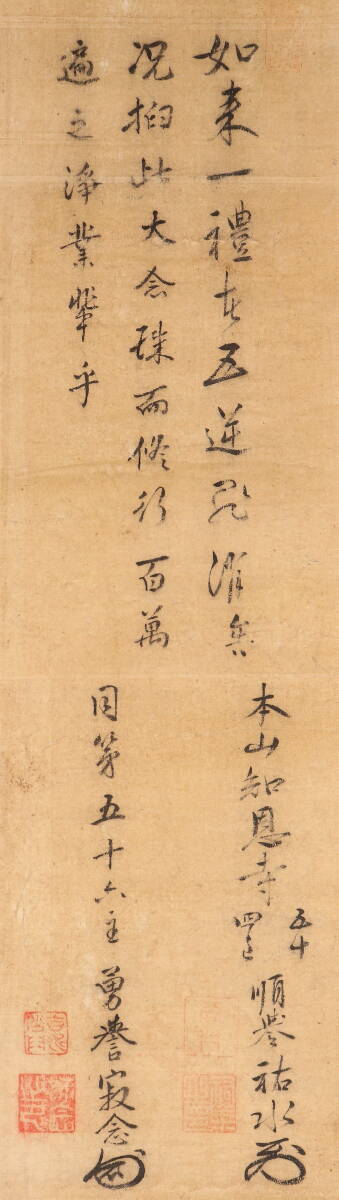 如来一禮者五逆罪消矣
况掐此大念珠而修行百萬
遍之淨業輩乎
本山知恩寺五十四主順譽祐水
同第五十六主勇譽寂念